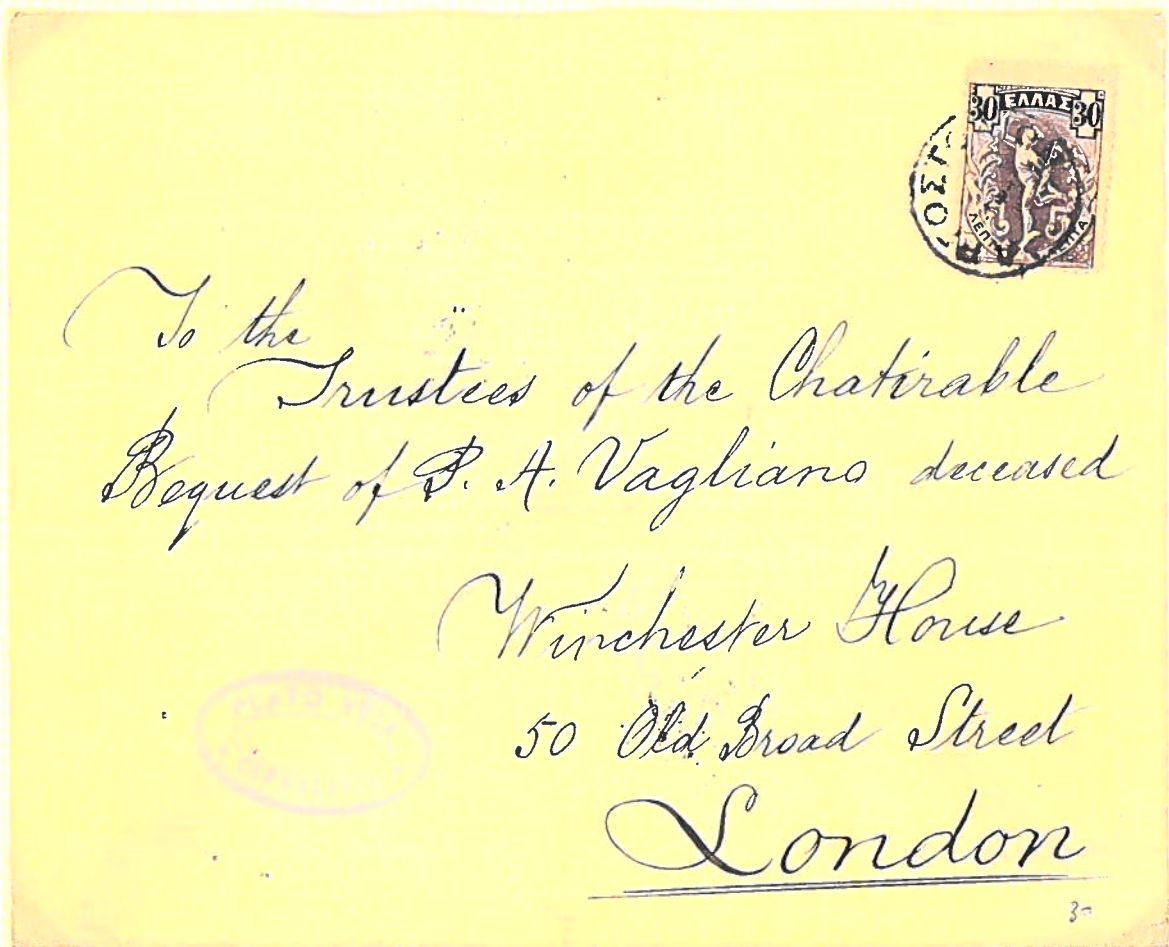 30 ΕΛΛΑΣ 30
ΛΕΠΤΑ ΛΕΠΤΑ
To the
Trustees of the Chatirable
Bequest of P. A. Vagliano deceased
Winchester House
50 Old Broad Street
London
30